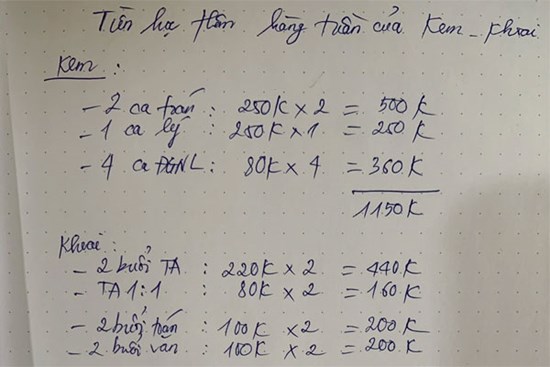 Tiền học thêm hàng tuần của Kem - Khoai
Kem :
- 2 ca toán : 250K x 2 = 500K
- 1 ca lý : 250K x 1 = 250K
- 4 ca ĐGNL : 80K x 4 = 360K
1150K
Khoai :
- 2 buổi TA : 220K x 2 = 440K
- TA 1:1 : 80K x 2 = 160K
- 2 buổi toán : 100K x 2 = 200K
- 2 buổi văn : 100K x 2 = 200K